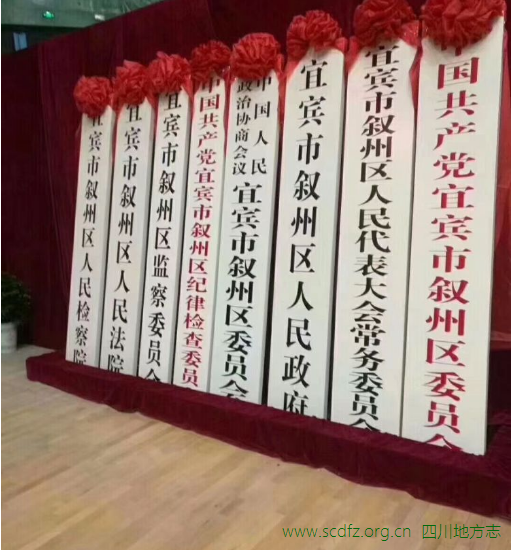 中国共产党宜宾市叙州区委员会
宜宾市叙州区人民代表大会常务委员会
宜宾市叙州区人民政府
中国人民
政治协商会议
宜宾市叙州区委员会
中国共产党宜宾市叙州区纪律检查委员会
宜宾市叙州区监察委员会
宜宾市叙州区人民法院
宜宾市叙州区人民检察院
www.scdfz.org.cn 四川地方志